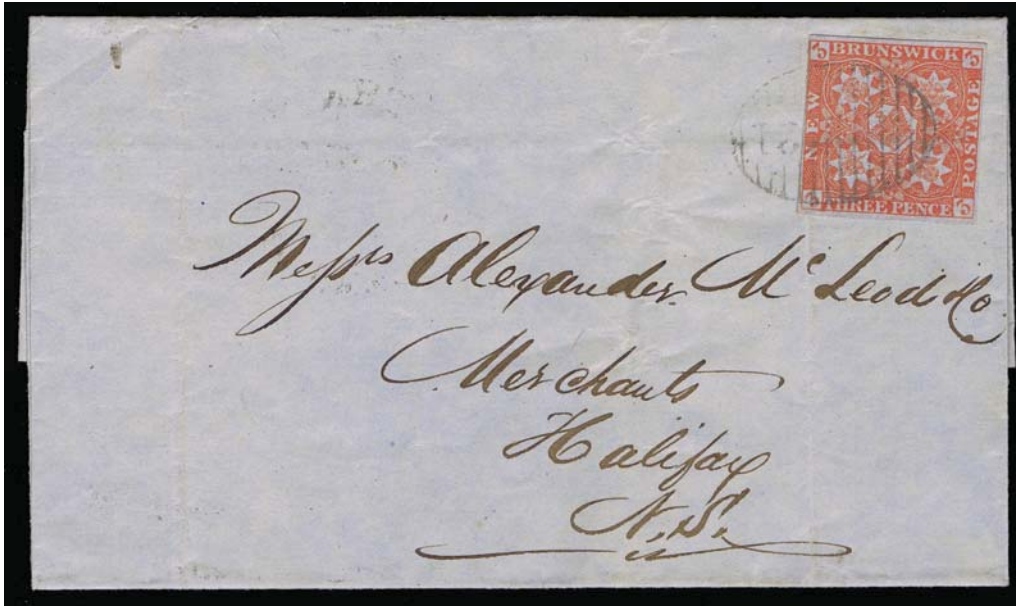 3 BRUNSWICK 3
NEW
POSTAGE
3 THREE PENCE 3
Messrs Alexander McLeod & Co
Merchants
Halifax
N.S.